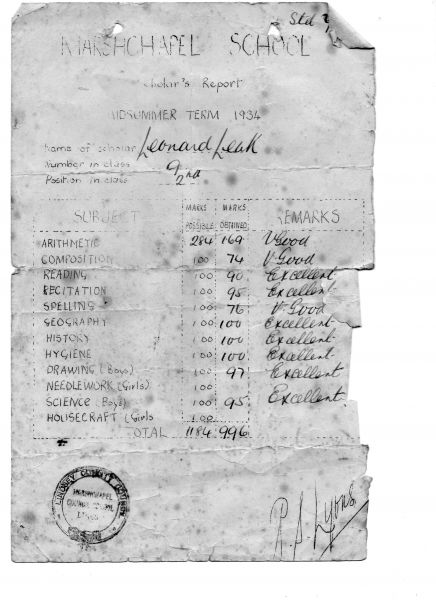 Std
MARSHCHAPEL SCHOOL
cholar's Report
MIDSUMMER TERM 1934
Name of scholar Leonard Leak
Number in class 9
Position in class 2nd
SUBJECT MARKS POSSIBLE MARKS OBTAINED REMARKS
ARITHMETIC 284 169 V Good
COMPOSITION 100 74 V Good
READING 100 90 Excellent
RECITATION 100 95 Excellent
SPELLING 100 76 V Good
GEOGRAPHY 100 100 Excellent
HISTORY 100 100 Excellent
HYGIENE 100 100 Excellent
DRAWING (Boys) 100 97 Excellent
NEEDLEWORK (Girls) 100
SCIENCE (Boys) 100 95 Excellent
HOUSECRAFT (Girls 100
OTAL 1184 996
LINDSEY COUNTY COUNCIL
MARSHCHAPEL
COUNCIL SCHOOL
R. S. Lyons